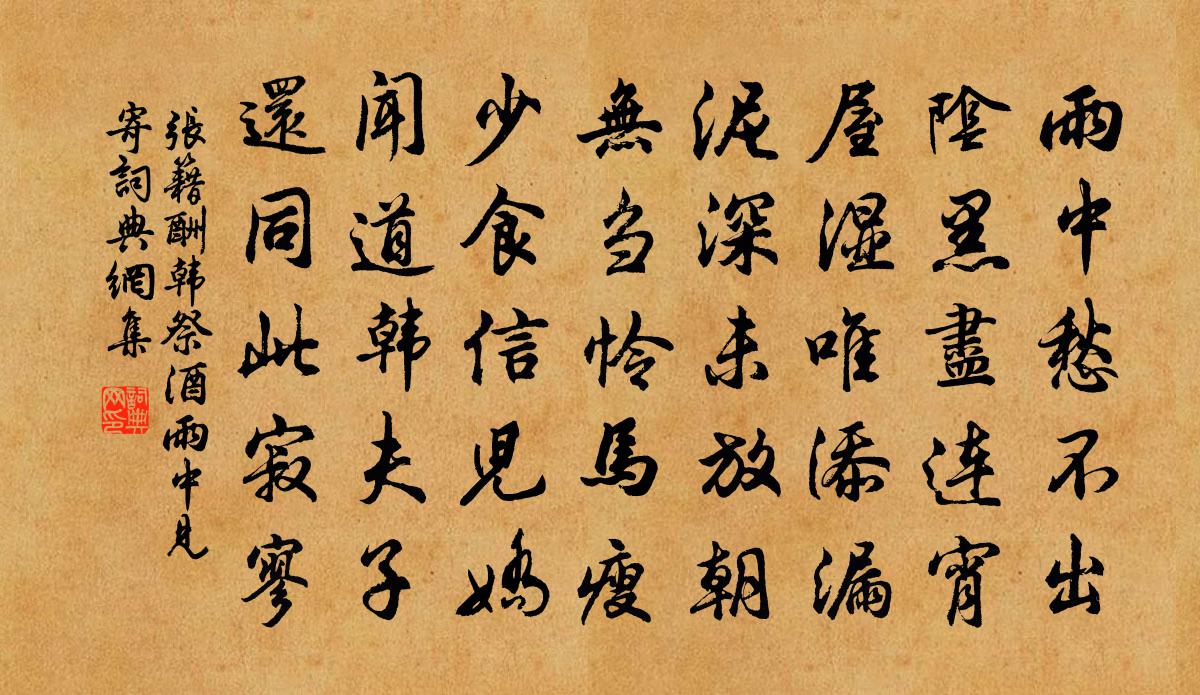 雨中愁不出
陰黑盡連宵
屋湿唯添漏
泥深未放朝
無芻怜馬瘦
少食信児嬌
聞道韩夫子
還同此寂寥
張籍酬韩祭酒雨中見
寄詞典網集
詞典
网印